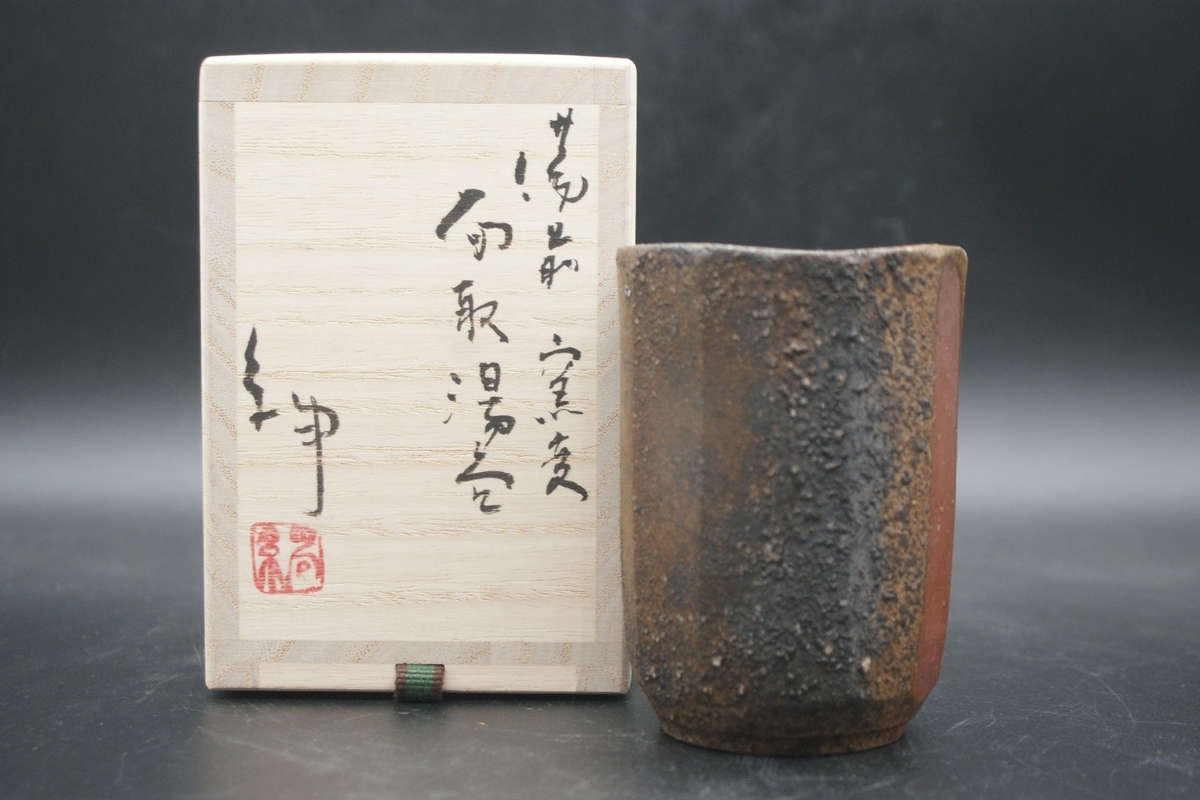 備前 窯変
面取湯呑
紳